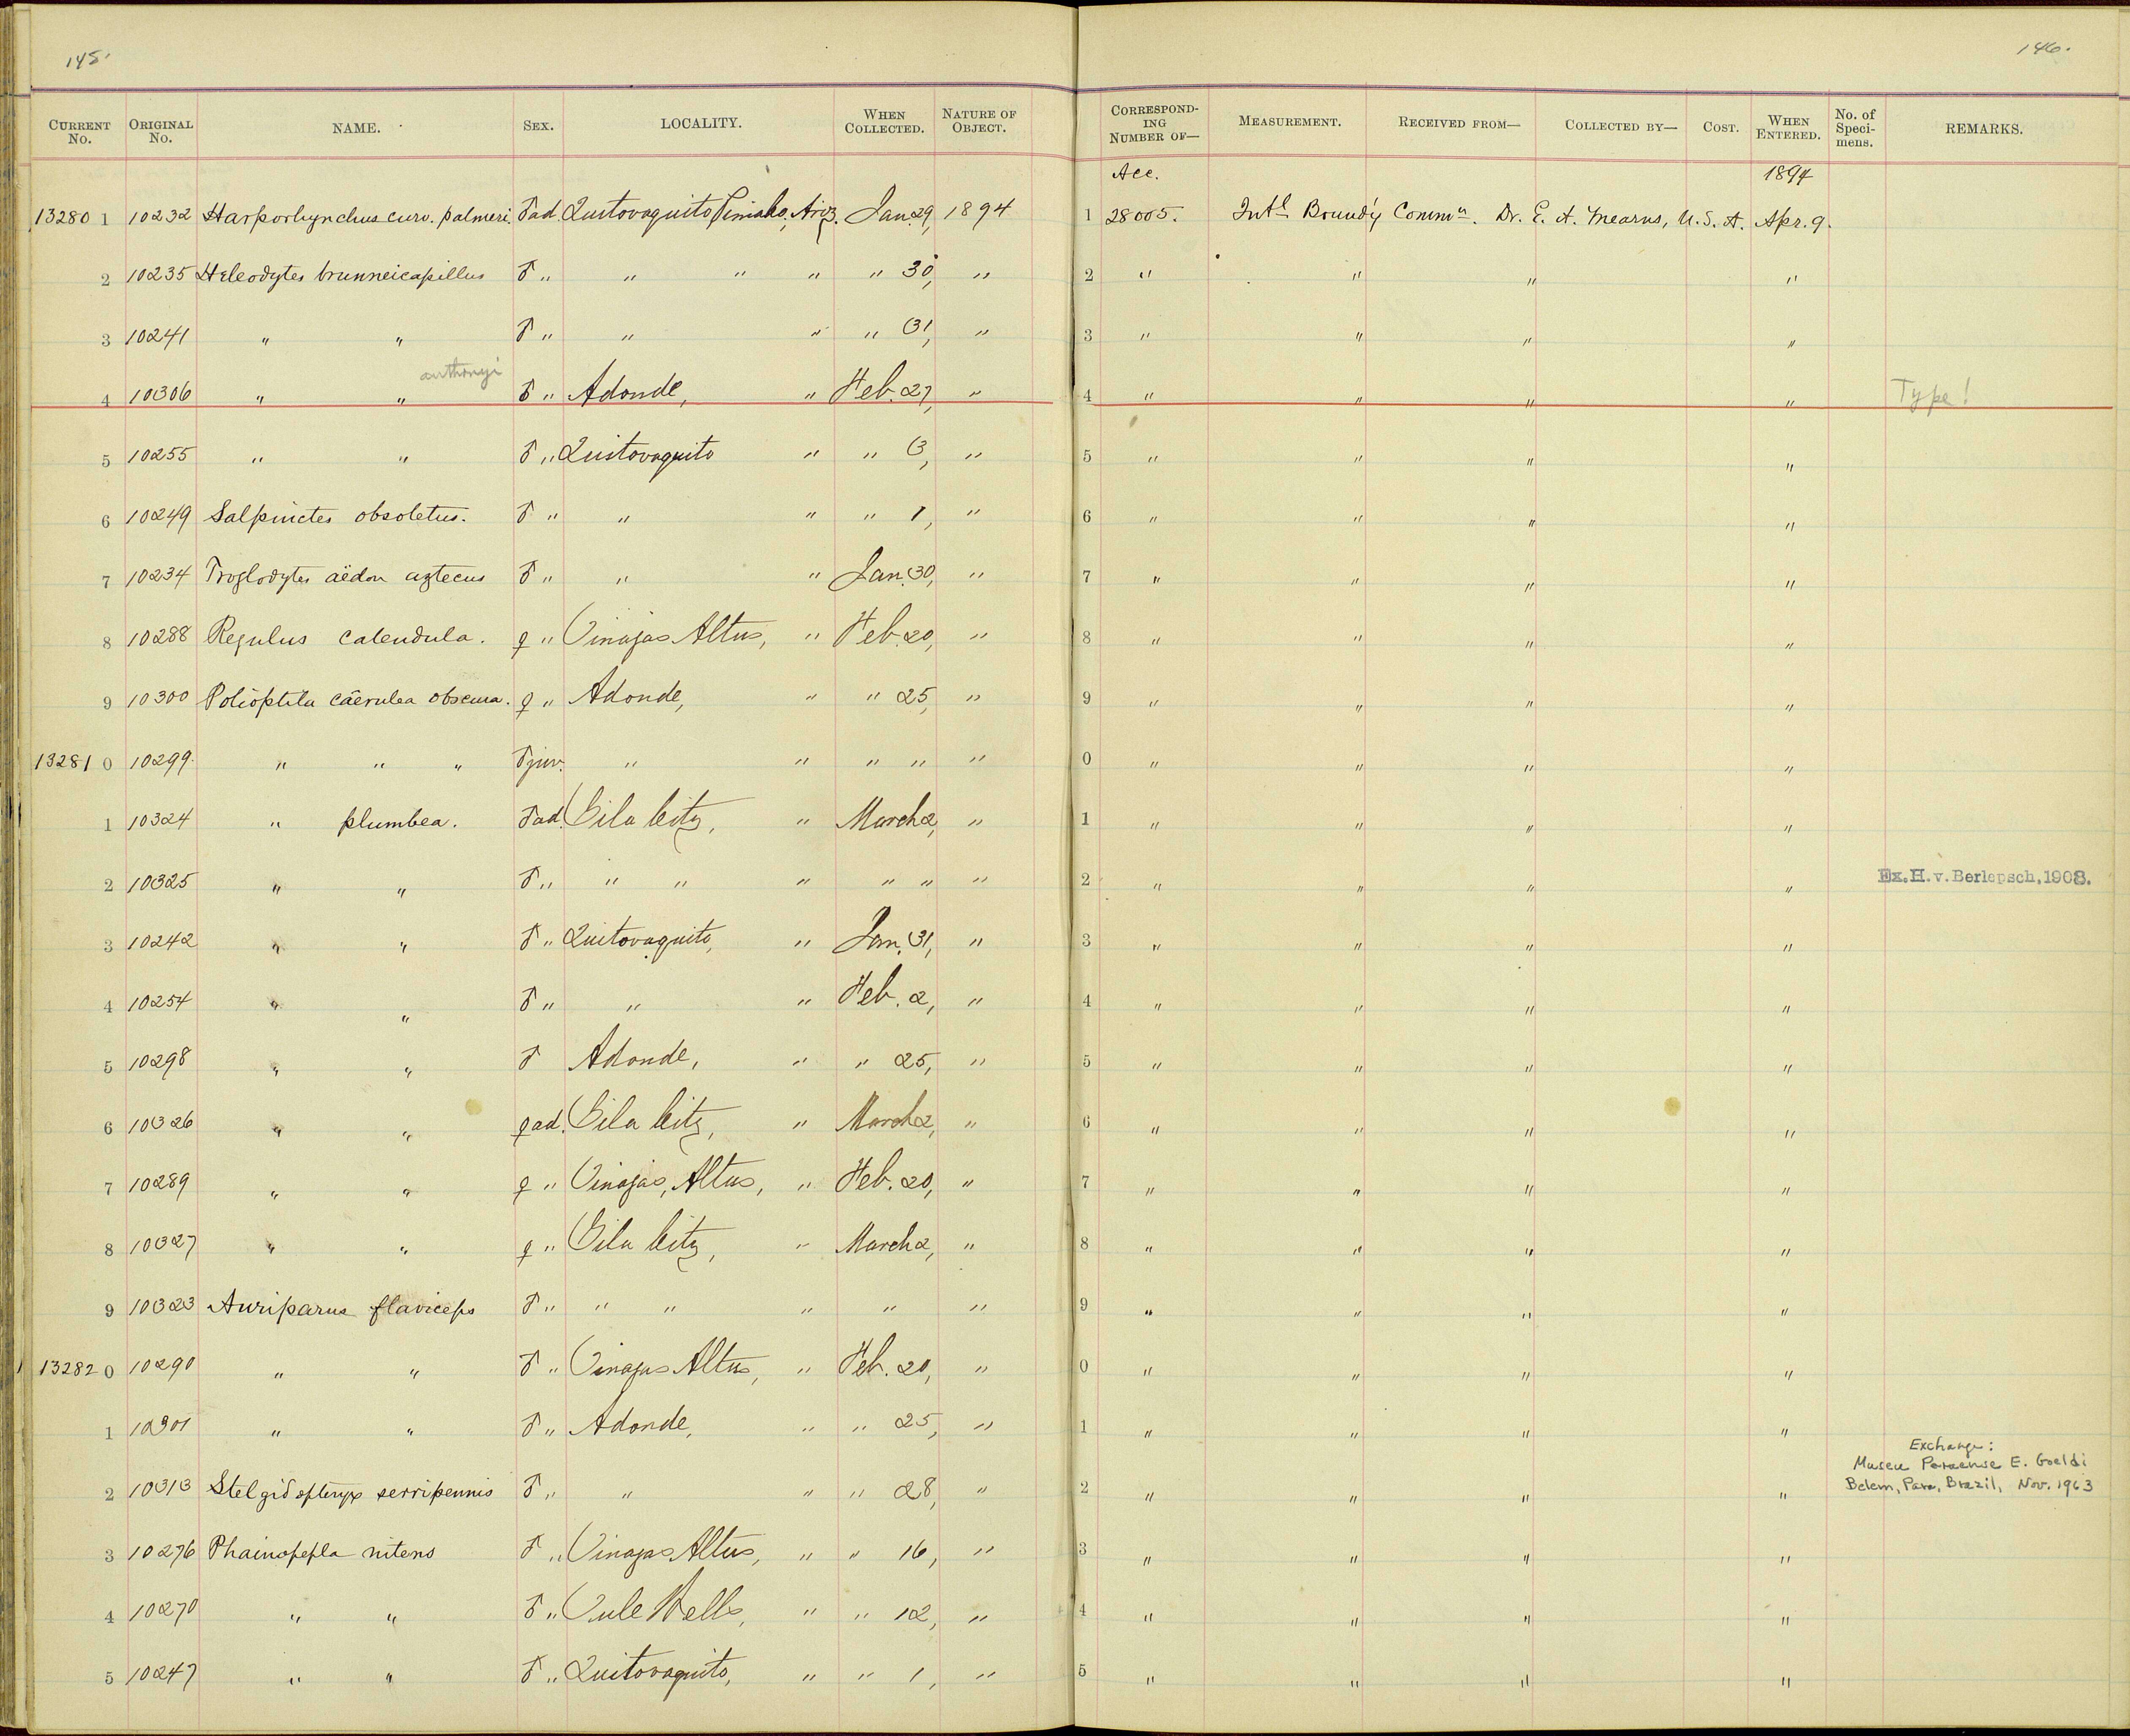 145.
146.
CURRENT No. ORIGINAL No. NAME. SEX. LOCALITY. WHEN COLLECTED. NATURE OF OBJECT. CORRESPONDING NUMBER OF— MEASUREMENT. RECEIVED FROM— COLLECTED BY— COST. WHEN ENTERED. No. of Specimens. REMARKS.
Acc. 1894
13280 1 10232 Harporhynchus curv. palmeri. ♂ ad. Quitovaquito, Ariz. Jan. 29, 1894 1 28005. Intl Bound'y Commn. Dr. E. A. Mearns, U.S.A. Apr. 9.
2 10235 Heleodytes brunneicapillus ♂ " " " " " 30, " 2 " " " "
3 10241 " " ♂ " " " " 31, " 3 " " " "
anthonyi
4 10306 " " ♂ " Adonde, " Feb. 27, " 4 " " " " Type!
5 10255 " " ♂ " Quitovaquito " " 3, " 5 " " " "
6 10249 Salpinctes obsoletus. ♂ " " " " 1, " 6 " " " "
7 10234 Troglodytes aëdon aztecus ♂ " " " Jan. 30, " 7 " " " "
8 10288 Regulus calendula. ♀ " Tinajas Altas, " Feb. 20, " 8 " " " "
9 10300 Polioptila cæerulea obscura. ♀ " Adonde, " " 25, " 9 " " " "
13281 0 10299. " " " ♂ juv. " " " " " 0 " " " "
1 10324 " plumbea. ♂ ad. Gila City, " March 2, " 1 " " " "
2 10325 " " ♂ " " " " " " " 2 " " " " Ex. H. v. Berlepsch, 1908.
3 10242 " " ♂ " Quitovaquito, " Jan. 31, " 3 " " " "
4 10254 " " ♂ " " " Feb. 2, " 4 " " " "
5 10298 " " ♂ Adonde, " " 25, " 5 " " " "
6 10326 " " ♀ ad. Gila City, " March 2, " 6 " " " "
7 10289 " " ♀ " Tinajas, Altas, " Feb. 20, " 7 " " " "
8 10327 " " ♀ " Gila City, " March 2, " 8 " " " "
9 10323 Auriparus flaviceps ♂ " " " " " " 9 " " " "
13282 0 10290 " " ♂ " Tinajas Altas, " Feb. 20, " 0 " " " "
1 " " ♂ " Adonde, " " 25, " 1 " " " "
Exchange:
Museu Paraense E. Goeldi
2 10313 Stelgidopteryx serripennis ♂ " " " " 28, " 2 " " " " Belem, Para, Brazil, Nov. 1963
3 10276 Phainopepla nitens ♂ " Tinajas Altas, " " 16, " 3 " " " "
4 10270 " " ♂ " Tule Wells, " " 12, " 4 " " " "
5 10247 " " ♂ " Quitovaquito, " " 1, " 5 " " " "